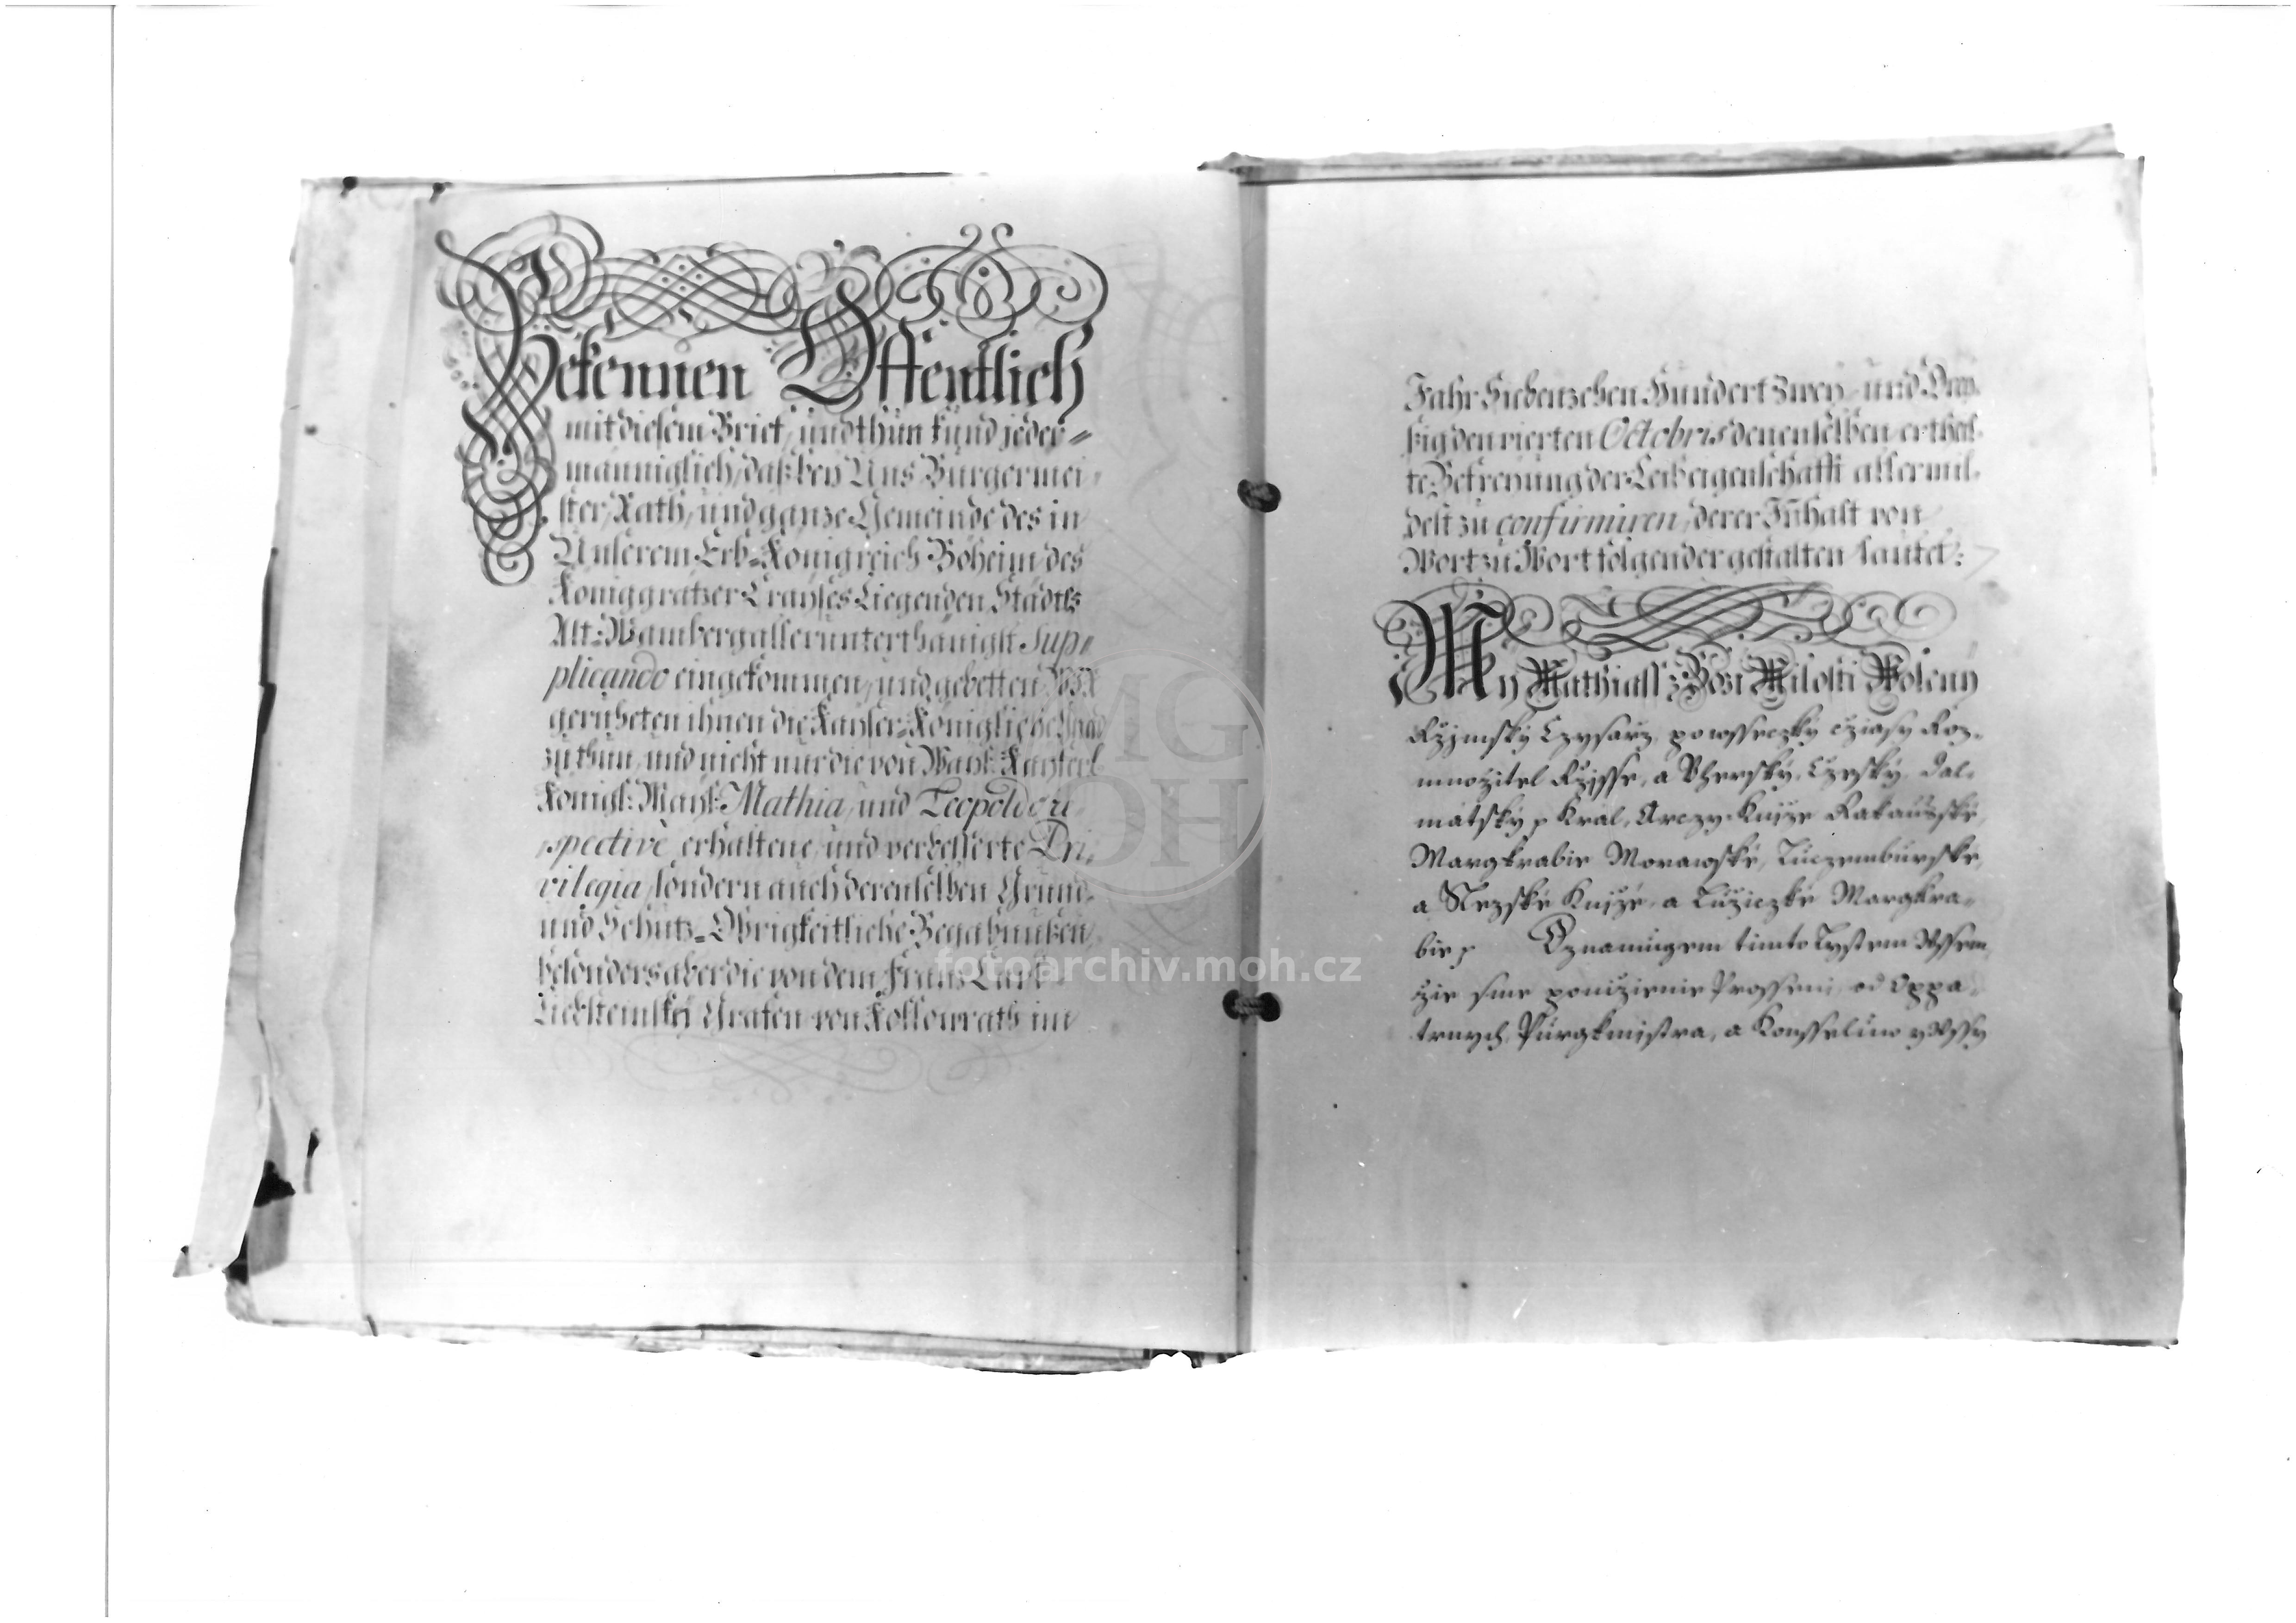 Bekennen Offentlich
mit diesem Brief, und thun kund jeder=
männiglich, daß bey Uns Burgermei=
ster, Rath, und ganze Gemeinde des in
Unserem Erb=Königreich Böheim des
Königgratzer Crayses Liegenden Städtls
Alt=Wamberg allerunterthänigst Sup=
plicando eingekommen, und gebetten Wir
geruheten ihnen die Kayser=Königliche Gnad
zu thun, und nicht nur die von Wayl: Kayserl:
Königl: Mayt: Mathia, und Leopoldo re=
spective erhaltene, und verbesserte Pri=
vilegia, sondern auch derenselben Grund=
und Schutz=Obrigkeitliche
besonders aber die von dem Frantz Carl
Liebsteinsky Grafen von Kollowrath im
Jahr Siebenzehen Hundert Zwey, und Drey=
ßig den vierten Octobris denenselben ertheil=
te Befreyung der Leibeigenschafft allermil=
dest zu confirmiren, derer Inhalt von
Wort zu Wort folgender gestalten lautet:
My Mathiass z Bozi Milosti Woleny
Ržjmský Czysarz, powsseczky cžiasy Roz=
množitel Ržjsse, a Vherský, Cžeský, Dal=
matský p Kral, Arczy=Knjže Rakauské,
Margkrabie Morawské, Luczemburské,
a Slezské Knjžé, a Lužiczké Margkra=
bie p Oznamugem timto Lystem Wssem,
žie sme ponižienie Prosseni, od Oppa=
trnych Purgkmistra, a Konsseluw y Wssy
MG
OH
fotoarchiv.moh.cz